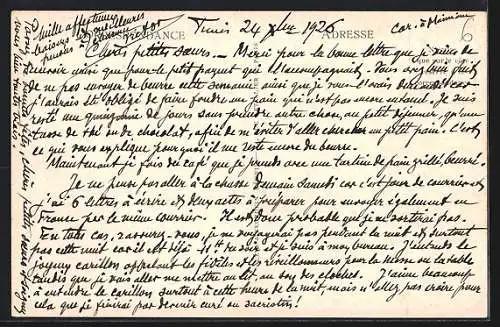 Tunis 24 Xbre 1926
CORRESPONDANCE
ADRESSE
Chères petites sœurs. – Merci pour la bonne lettre que je viens de
recevoir ainsi que pour le petit paquet qui l'accompagnait. Vous avez bien fait
de ne pas envoyer de beurre cette semaine ainsi que je vous l'avais demandé car
j'aurais été obligé de faire fondre un pain qui n'est pas encore entamé. Je suis
resté une quinzaine de jours sans prendre autre chose, au petit déjeuner, qu'une
tasse de thé ou de chocolat, afin de m'éviter d'aller chercher un petit pain. C'est
ce qui vous explique pourquoi il me reste encore du beurre.
Maintenant je fais du café que je prends avec une tartine de pain grillé, beurré.
Je ne pense pas aller à la chasse demain samedi car c'est jour de courrier et
j'ai 6 lettres à écrire et deux actes à préparer pour envoyer également en
France par le même courrier. Il est donc probable que je ne sortirai pas.
En tous cas, rassurez-vous, je ne voyagerai pas pendant la nuit et surtout
pas cette nuit car il est déjà 11h du soir et je suis à mon bureau. J'entends le
joyeux carillon appelant les fidèles et les réveillonneurs pour la messe ou la table
tandis que je vais aller me mettre au lit, au son des cloches. J'aime beaucoup
à entendre le carillon surtout à cette heure de la nuit mais n'allez pas croire pour
cela que je finirai par devenir curé ou sacristain!
Mille affectueux
baisers